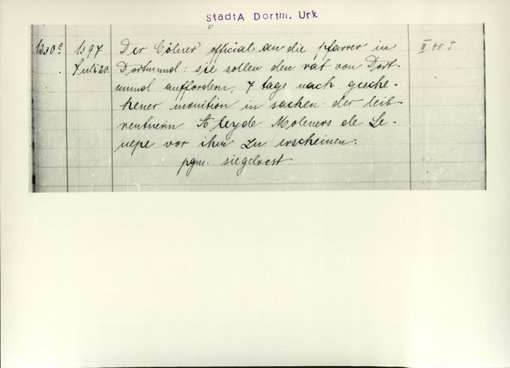 StadtA Dortm. Urk
1330c 1397 Der Cölner official an die pfarrer in II 45 I
Juli 20. Dortmund: sie sollen den rat von Dort-
mund auffordern, 7 tage nach gesche-
hener monition in sachen der leib-
rentnerin Aleyde Moleners de Le-
nepe vor ihm zu erscheinen.
pgm. siegelrest.